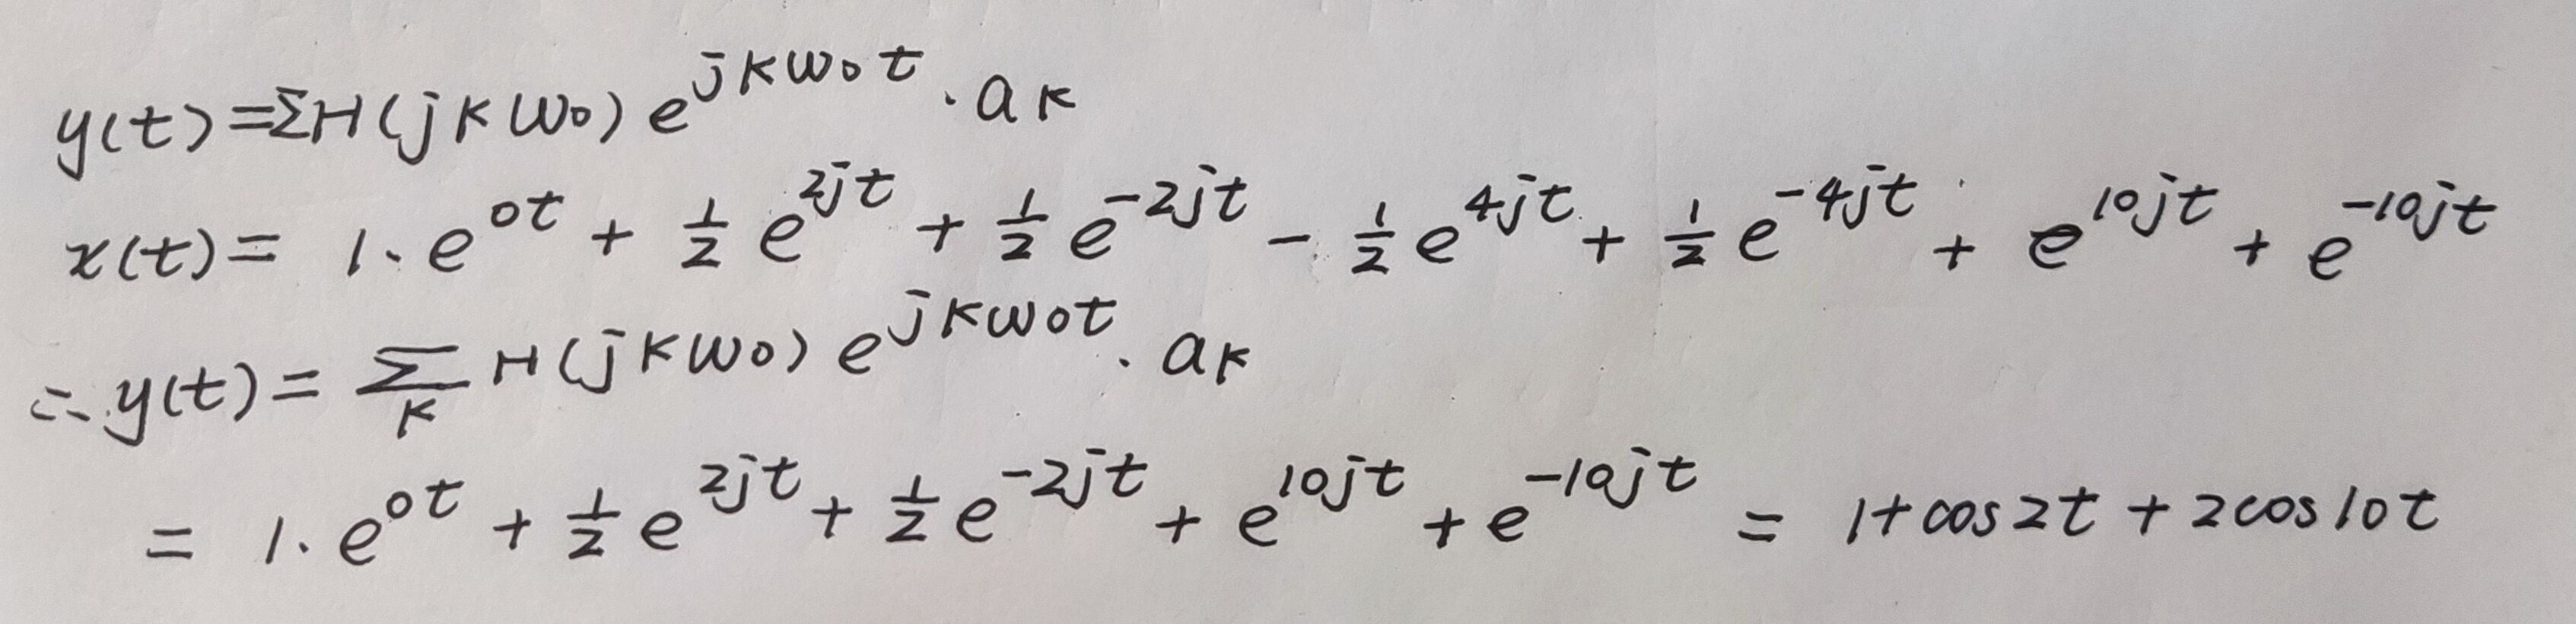 y(t)=ΣH(jkω₀)e^{jkω₀t}·a_k
x(t)= 1·e^{0t} + 1/2 e^{2jt} + 1/2 e^{-2jt} - 1/2 e^{4jt} + 1/2 e^{-4jt} + e^{10jt} + e^{-10jt}
∴ y(t)= Σ_k H(jkω₀)e^{jkω₀t}·a_k
= 1·e^{0t} + 1/2 e^{2jt} + 1/2 e^{-2jt} + e^{10jt} + e^{-10jt} = 1+cos2t+2cos10t